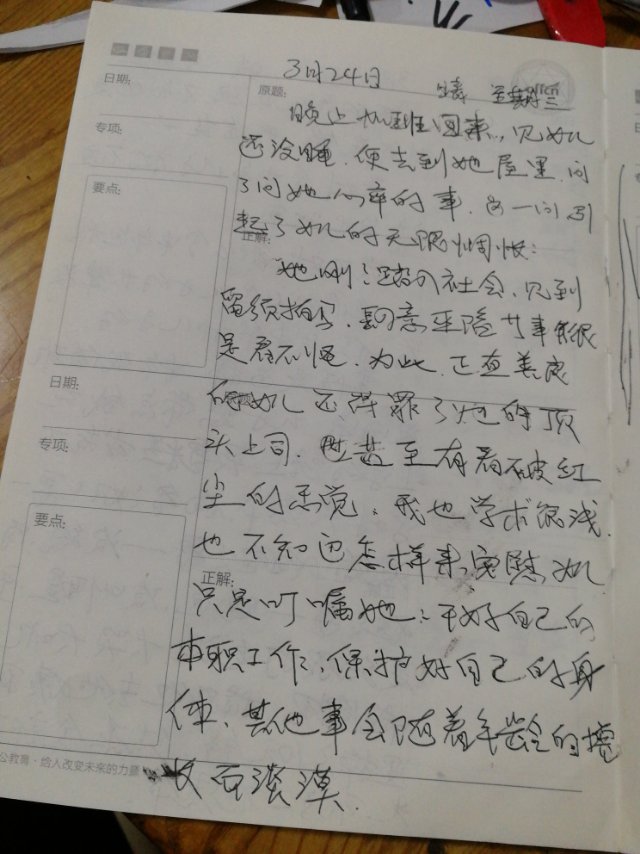 3月24日
日期:
原题:
晚上加班回来,见女儿
专项:
还没睡,便去到她屋里,问
要点:
了问她心牵的事,这一问引
起了女儿的无限惆怅:
正解:
她刚刚踏入社会,见到
留须拍马,阿意平隆
是看不惯,为此,正直善良
日期:
的女儿还得罪了她的顶
专项:
头上司,她甚至有看破红
尘的感觉,我也学术很浅,
要点:
也不知道怎样来安慰女儿
正解:
只是叮嘱她:干好自己的
本职工作,保护好自己的身
体,其他事会随着年龄的增
公教育·给人改变未来的力量
长而淡漠.